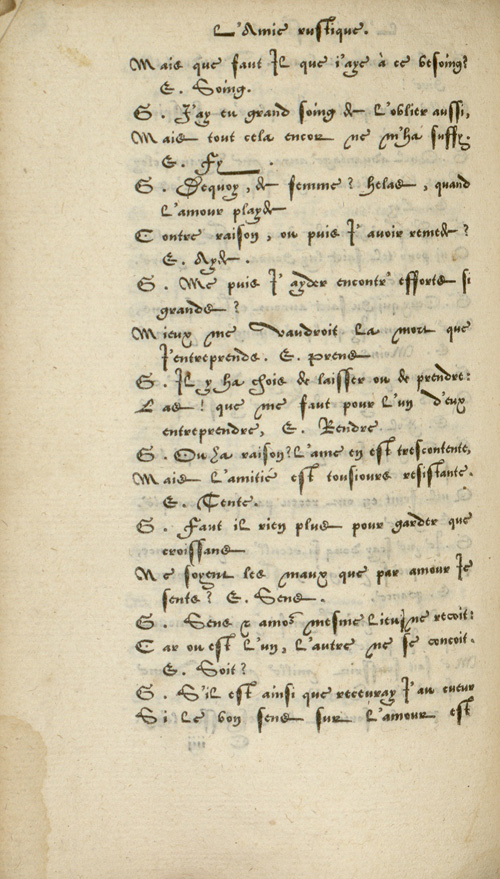 L'Amie rustique.
Mais que faut Il que i'aye à ce besoing?
E. Soing.
G. J'ay eu grand soing de L'oblier aussi,
Mais tout cela encor ne m'ha suffy.
E. Fy.
G. Dequoy, de femme? helas, quand
L'amour playde
Contre raison, ou puis I'avoir remede?
E. Ayde.
G. Me puis I'ayder encontr' effortz si
grandz?
Mieux me vaudroit La mort que
I'entreprends. E. prens
G. Il y ha chois de laisser ou de prendre:
Las! que me faut pour L'un d'eux
entreprendre, E. Rendre
G. Ou ha raison? L'ame en est trescontente,
Mais L'amitié est tousiours resistante.
E. Tente.
G. Faut il rien plus pour garder que
croissans
Ne soyent les maux que par amour Ie
sents? E. Sens.
G. Sens & amor mesme Lieu ne recoit:
Car ou est L'un, L'autre ne se concoit.
E. Soit?
G. S'il est ainsi que recevray I'au cueur
Si Le bon sens sur L'amour est